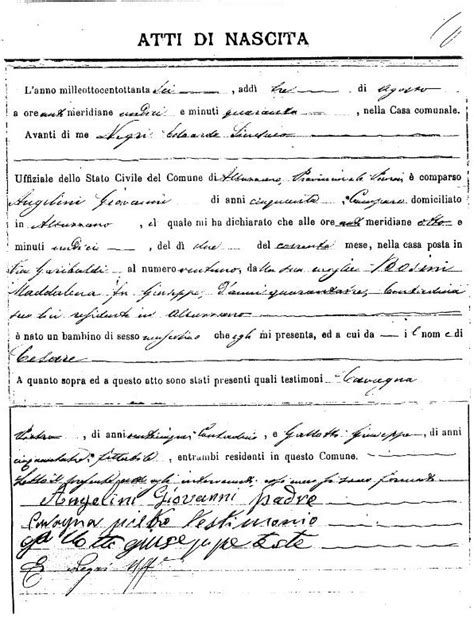 ATTI DI NASCITA
L'anno milleottocentottanta Sei, addì tre di Agosto
a ore ant meridiane undici e minuti quaranta, nella Casa comunale.
Avanti di me Negri Edoardo Sindaco
Uffiziale dello Stato Civile del Comune di Albuzzano, è comparso
Angelini Giovanni di anni cinquanta domiciliato
in Albuzzano, il quale mi ha dichiarato che alle ore meridiane otto e
minuti undici, del dì due del corrente mese, nella casa posta in
Via Garibaldi al numero ventuno, dalla sua moglie Bosini
Maddalena fu Giuseppe, d'anni quarantatre, Contadina
seco lui residente in Albuzzano
è nato un bambino di sesso mascolino che egli mi presenta, ed a cui dà il nome di
Cesare
A quanto sopra ed a questo atto sono stati presenti quali testimoni Cavagna
Pietro, di anni Contadino, e Gallotti Giuseppe, di anni
, entrambi residenti in questo Comune.
Angelini Giovanni padre
Cavagna pietro testimonio
gallotti giuseppe teste
E Negri